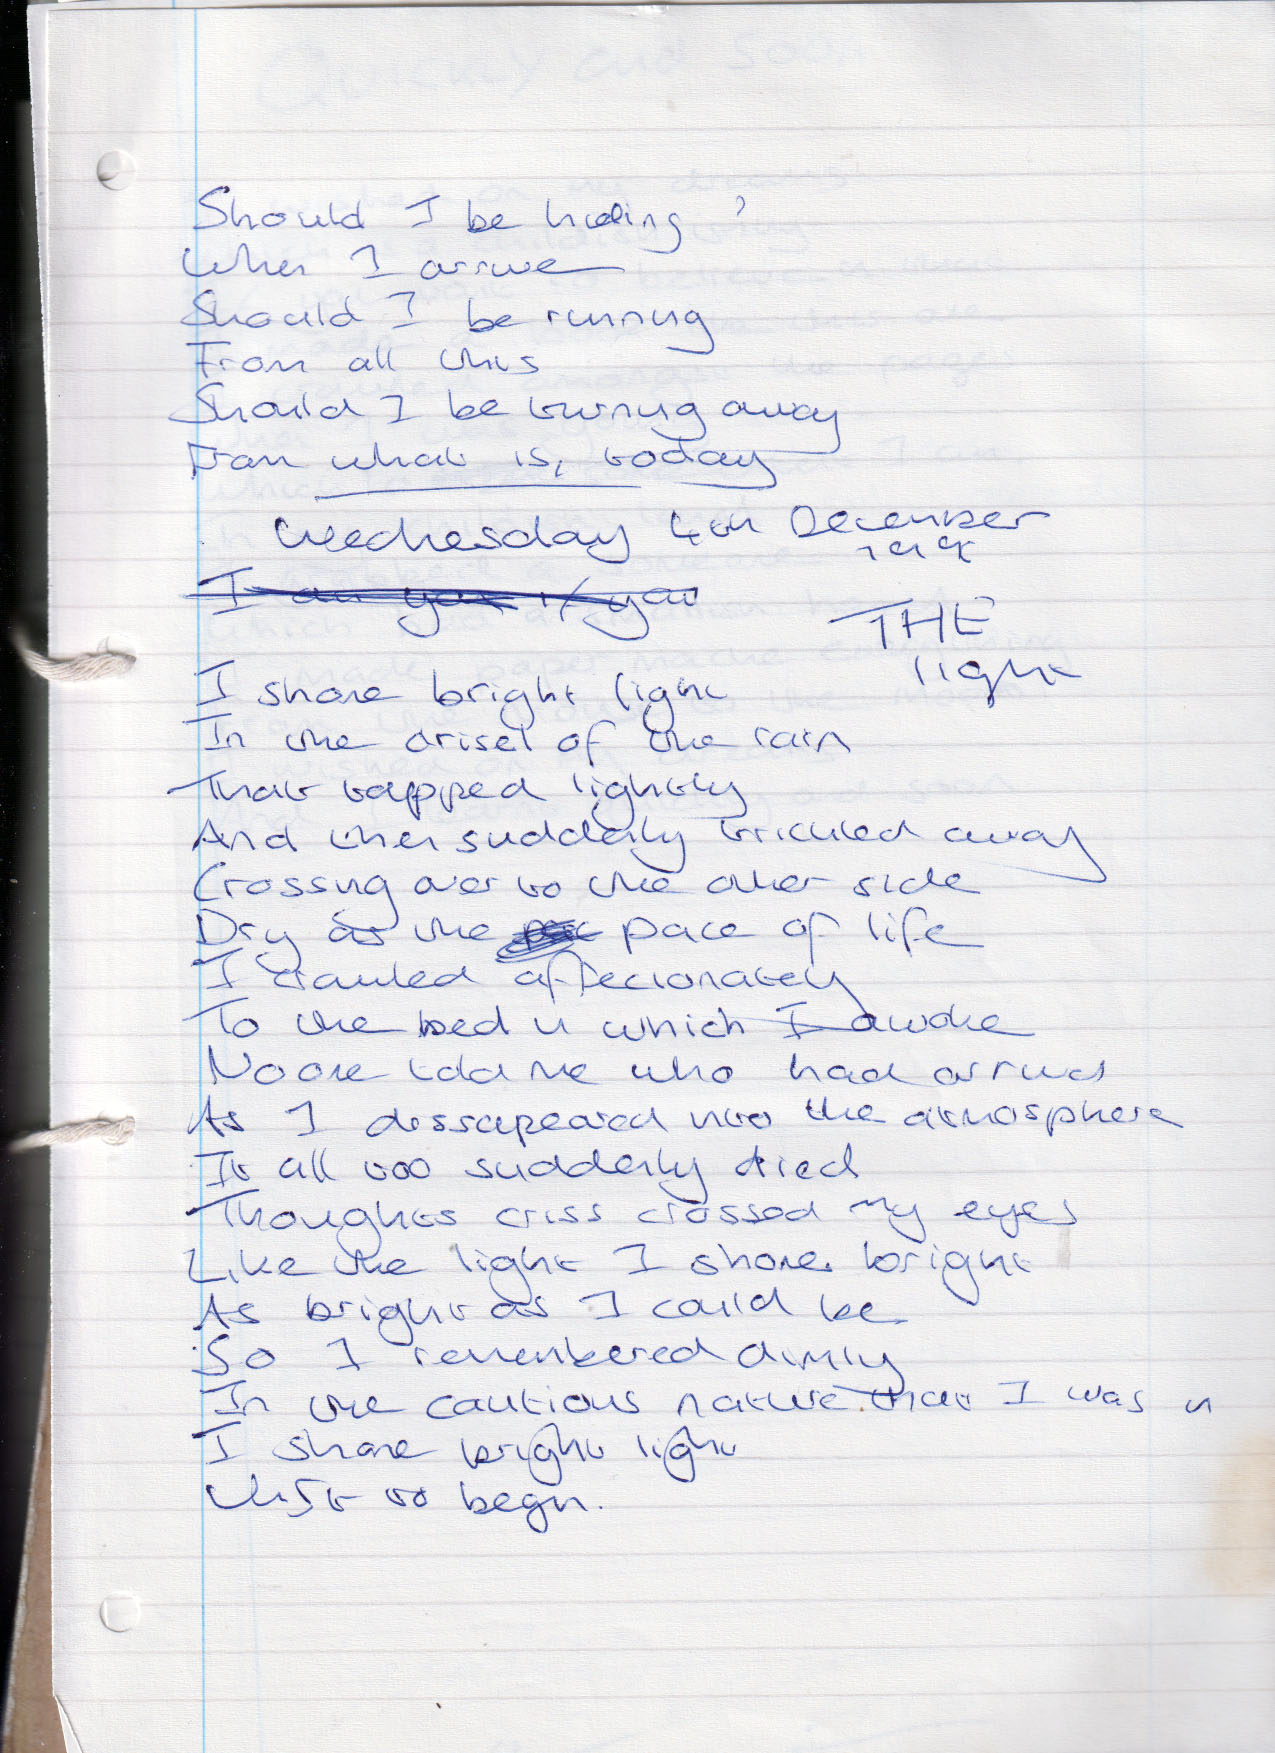 Should I be hiding?
When I arrive
Should I be running
From all this
Should I be turning away
From what is, today
Wednesday 4th December
THE
light
I shone bright light
In the drisel of the rain
That tapped lightly
And then suddenly trickled away
Crossing over to the other side
Dry as the pace of life
I crawled affecionately
To the bed in which I awoke
No one told me who had arrived
As I dissapeared into the atmosphere
It all too suddenly died
Thoughts criss crossed my eyes
Like the light I shone bright
As bright as I could be
So I remembered dimly
In the cautious nature that I was in
I shone bright light
to begin.